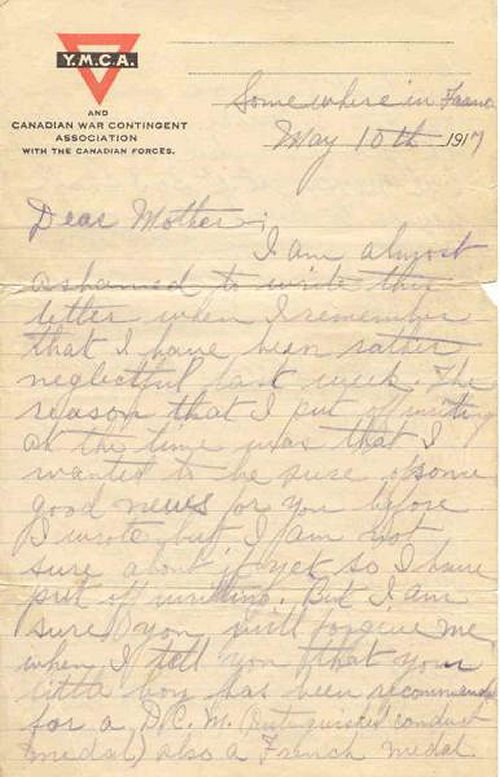 Y.M.C.A.
AND
CANADIAN WAR CONTINGENT
ASSOCIATION
WITH THE CANADIAN FORCES.
Somewhere in France
May 10th 1917
Dear Mother;
I am almost
ashamed to write this
letter when I remember
that I have been rather
neglectful last week. The
reason that I put of writing
at the time was that I
wanted to be sure of some
good news for you before
I wrote but I am not
sure about it yet so I have
put off writting. But I am
sure you will forgive me
when I tell you that your
little boy has been recommended
for a D.C.M. (Distinguished conduct
medal) also a French medal